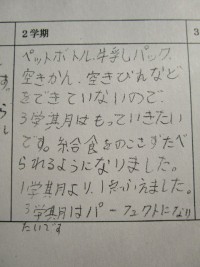 2学期
3
ペットボトル、牛乳パック、
空きかん、空きびんなど
をできていないので
3学期はもっていきたい
です。給食をのこさずたべ
られるようになりました。
1学期より、1点ふえました。
3学期はパーフェクトになり
たいです